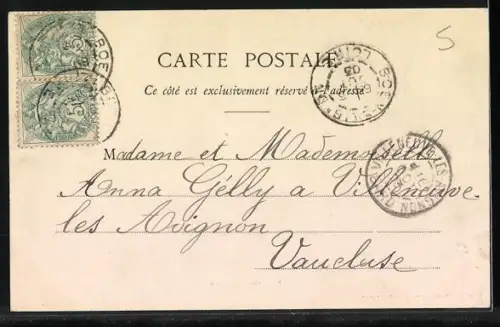 5
CARTE POSTALE
Ce côté est exclusivement réservé à l'adresse
M
Madame et Mademoiselle
Anna Gélly a Villeneuve
les Avignon
Vaucluse